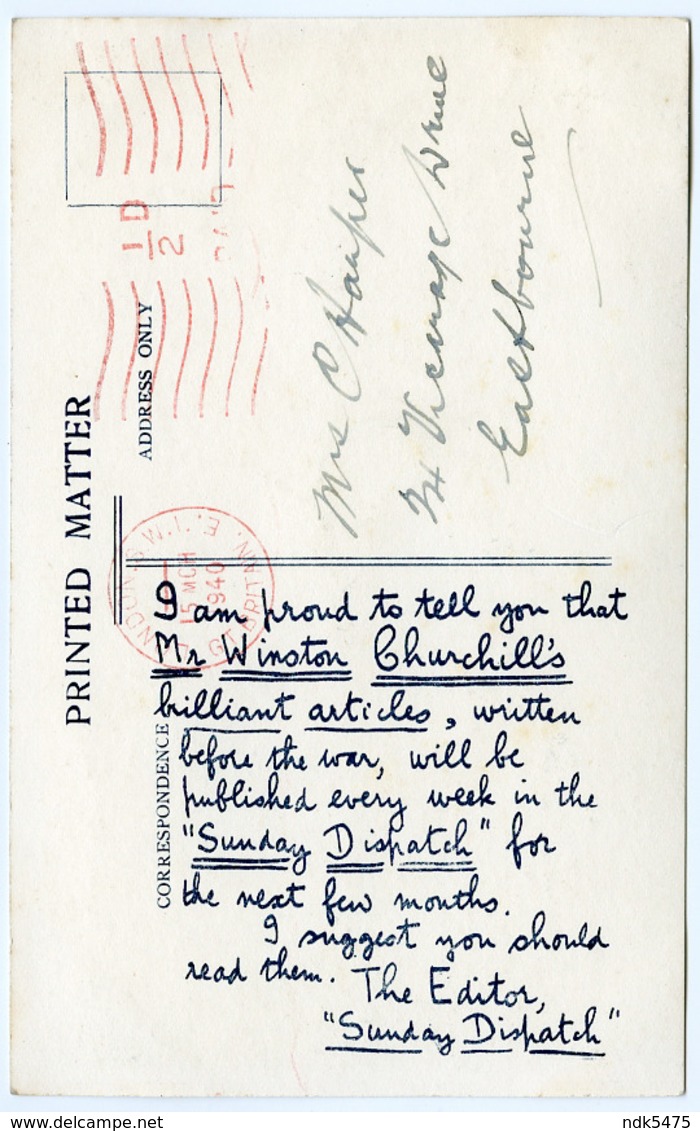 PRINTED MATTER
ADDRESS ONLY
1/2 D
LONDON S.W.1.
15 MCH
1940
GT. BRITAIN.
Mrs C Harper
Vicarage Drive
Eastbourne
CORRESPONDENCE
I am proud to tell you that
Mr Winston Churchill's
brilliant articles, written
before the war, will be
published every week in the
"Sunday Dispatch" for
the next few months.
I suggest you should
read them.
The Editor,
"Sunday Dispatch"
www.delcampe.net
ndk5475